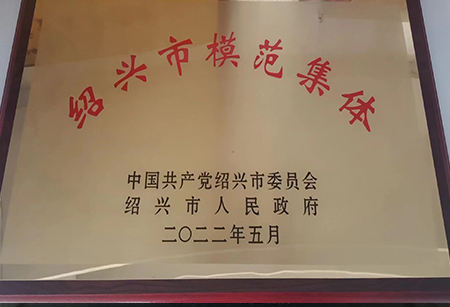 绍兴市模范集体
中国共产党绍兴市委员会
绍兴市人民政府
二〇二二年五月